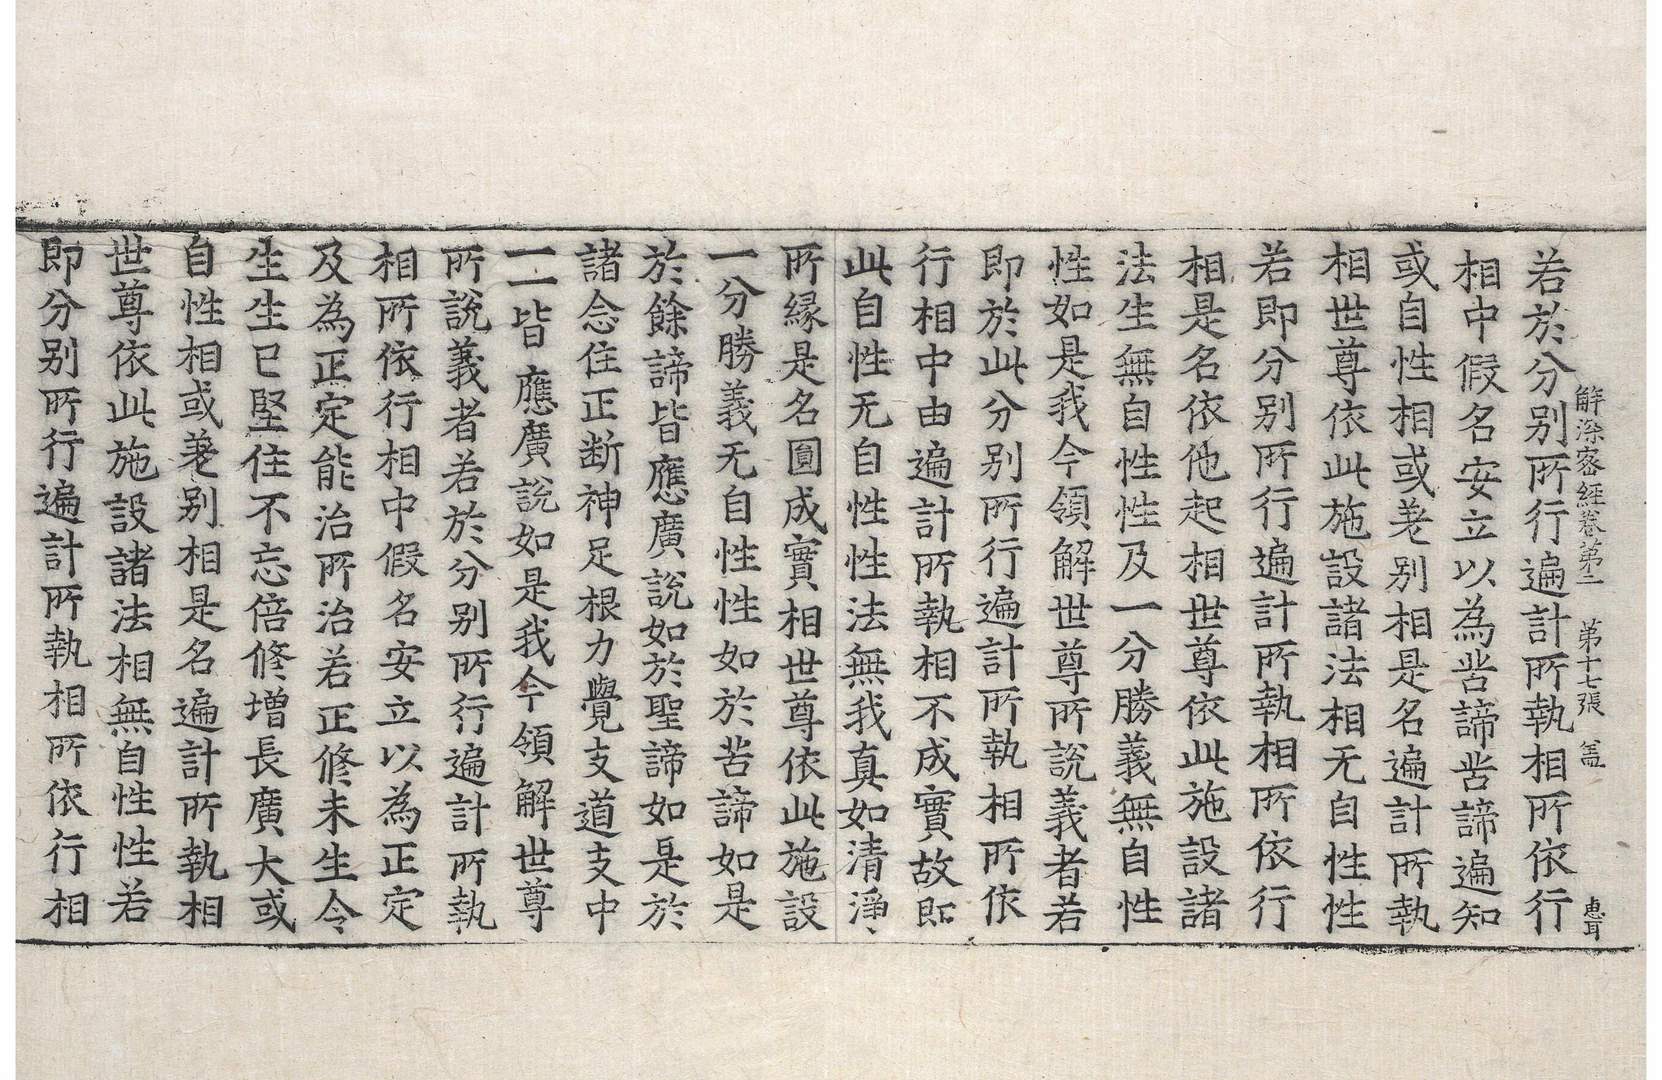 解深密經卷第二 第十七張 盖 惠耳
若於分别所行遍計所執相所依行
相中假名安立以為苦諦苦諦遍知
或自性相或差别相是名遍計所執
相世尊依此施設諸法相无自性性
若即分别所行遍計所執相所依行
相是名依他起相世尊依此施設諸
法生無自性性及一分勝義無自性
性如是我今領解世尊所說義者若
即於此分别所行遍計所執相所依
行相中由遍計所執相不成實故即
此自性无自性性法無我真如清淨
所緣是名圓成實相世尊依此施設
一分勝義无自性性如於苦諦如是
於餘諦皆應廣說如於聖諦如是於
諸念住正斷神足根力覺支道支中
一一皆應廣說如是我今領解世尊
所說義者若於分别所行遍計所執
相所依行相中假名安立以為正定
及為正定能治所治若正修未生令
生生已堅住不忘倍修增長廣大或
自性相或差别相是名遍計所執相
世尊依此施設諸法相無自性性若
即分别所行遍計所執相所依行相